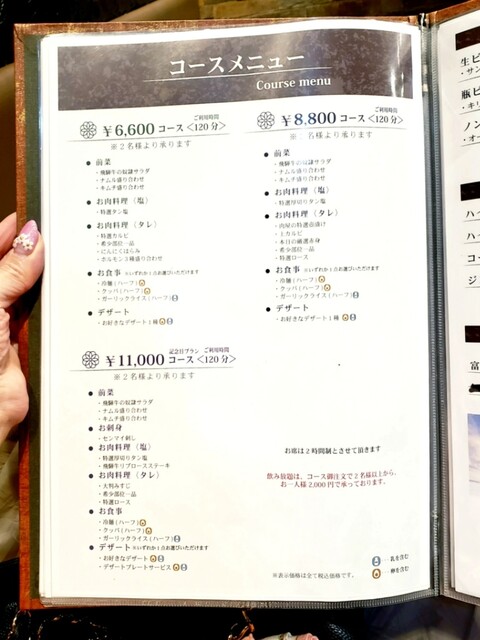 コースメニュー
Course menu
ご利用時間
￥6,600 コース <120分>
※2名様より承ります
● 前菜
・飛騨牛の奴隷サラダ
・ナムル盛り合わせ
・キムチ盛り合わせ
● お肉料理（塩）
・特選タン塩
● お肉料理（タレ）
・特選カルビ
・希少部位一品
・にんにくはらみ
・ホルモン3種盛り合わせ
● お食事 ※いずれか1点お選びいただけます
・冷麺(ハーフ)
・クッパ(ハーフ)
・ガーリックライス(ハーフ)
● デザート
・お好きなデザート1種
ご利用時間
￥8,800 コース <120分>
※2名様より承ります
● 前菜
・飛騨牛の奴隷サラダ
・ナムル盛り合わせ
・キムチ盛り合わせ
● お肉料理（塩）
・特選厚切りタン塩
● お肉料理（タレ）
・肉屋の特選壺漬け
・上カルビ
・本日の厳選赤身
・希少部位一品
・特選ロース
● お食事 ※いずれか1点お選びいただけます
・冷麺(ハーフ)
・クッパ(ハーフ)
・ガーリックライス(ハーフ)
● デザート
・お好きなデザート1種
記念日プラン ご利用時間
￥11,000 コース <120分>
※2名様より承ります
● 前菜
・飛騨牛の奴隷サラダ
・ナムル盛り合わせ
・キムチ盛り合わせ
● お刺身
・センマイ刺し
● お肉料理（塩）
・特選厚切りタン塩
・飛騨牛リブロースステーキ
● お肉料理（タレ）
・大判みすじ
・希少部位一品
・特選ロース
● お食事
・冷麺(ハーフ)
・クッパ(ハーフ)
・ガーリックライス(ハーフ)
● デザート ※いずれか1点お選びいただけます
・お好きなデザート
・デザートプレートサービス
お席は2時間制とさせて頂きます
飲み放題は、コース御注文で2名様以上から、
お一人様2,000円で承っております。
…乳を含む
…卵を含む
※表示価格は全て税込価格です。
生ビ
・サン
瓶ビ
・キリ
ノン
・オー
ハイ
ハイ
コー
ジ
富